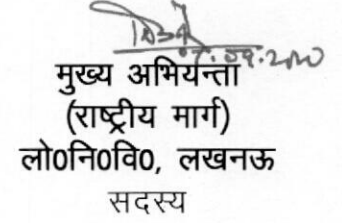 मुख्य अभियन्ता
(राष्ट्रीय मार्ग)
लो0नि0वि0, लखनऊ
सदस्य